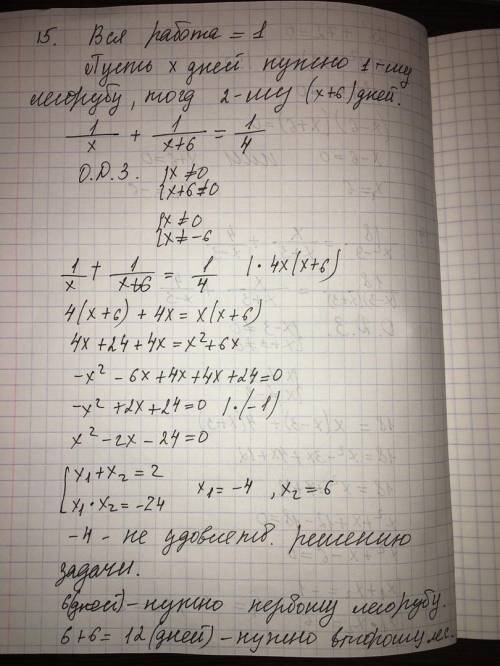 15. Вся работа = 1
Пусть x дней нужно 1-му
лесорубу, тогд 2-му (x+6) дней.
1/x + 1/(x+6) = 1/4
О.Д.З. {x ≠ 0
{x+6 ≠ 0
{x ≠ 0
{x ≠ -6
1/x + 1/(x+6) = 1/4 | · 4x(x+6)
4(x+6) + 4x = x(x+6)
4x + 24 + 4x = x² + 6x
-x² - 6x + 4x + 4x + 24 = 0
-x² + 2x + 24 = 0 | · (-1)
x² - 2x - 24 = 0
{x₁ + x₂ = 2
{x₁ · x₂ = -24 x₁ = -4 , x₂ = 6
-4 - не удовлетв. решению
задачи.
6(дней) - нужно первому лесорубу.
6+6 = 12 (дней) - нужно второму лес.